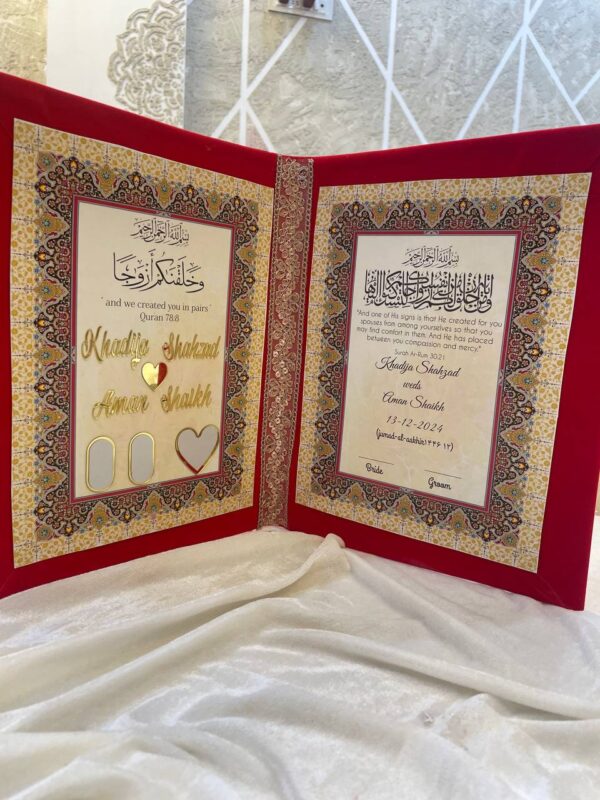 بسم الله الرحمن الرحيم
وَخَلَقْنَٰكُمْ أَزْوَٰجًا
' and we created you in pairs '
Quran 78:8
Khadija Shahzad
Aman Shaikh
بسم الله الرحمن الرحيم
"And one of His signs is that He created for you
spouses from among yourselves so that you
may find comfort in them. And He has placed
between you compassion and mercy."
Surah Ar-Rum 30:21
Khadija Shahzad
weds
Aman Shaikh
13-12-2024
Bride
Groom